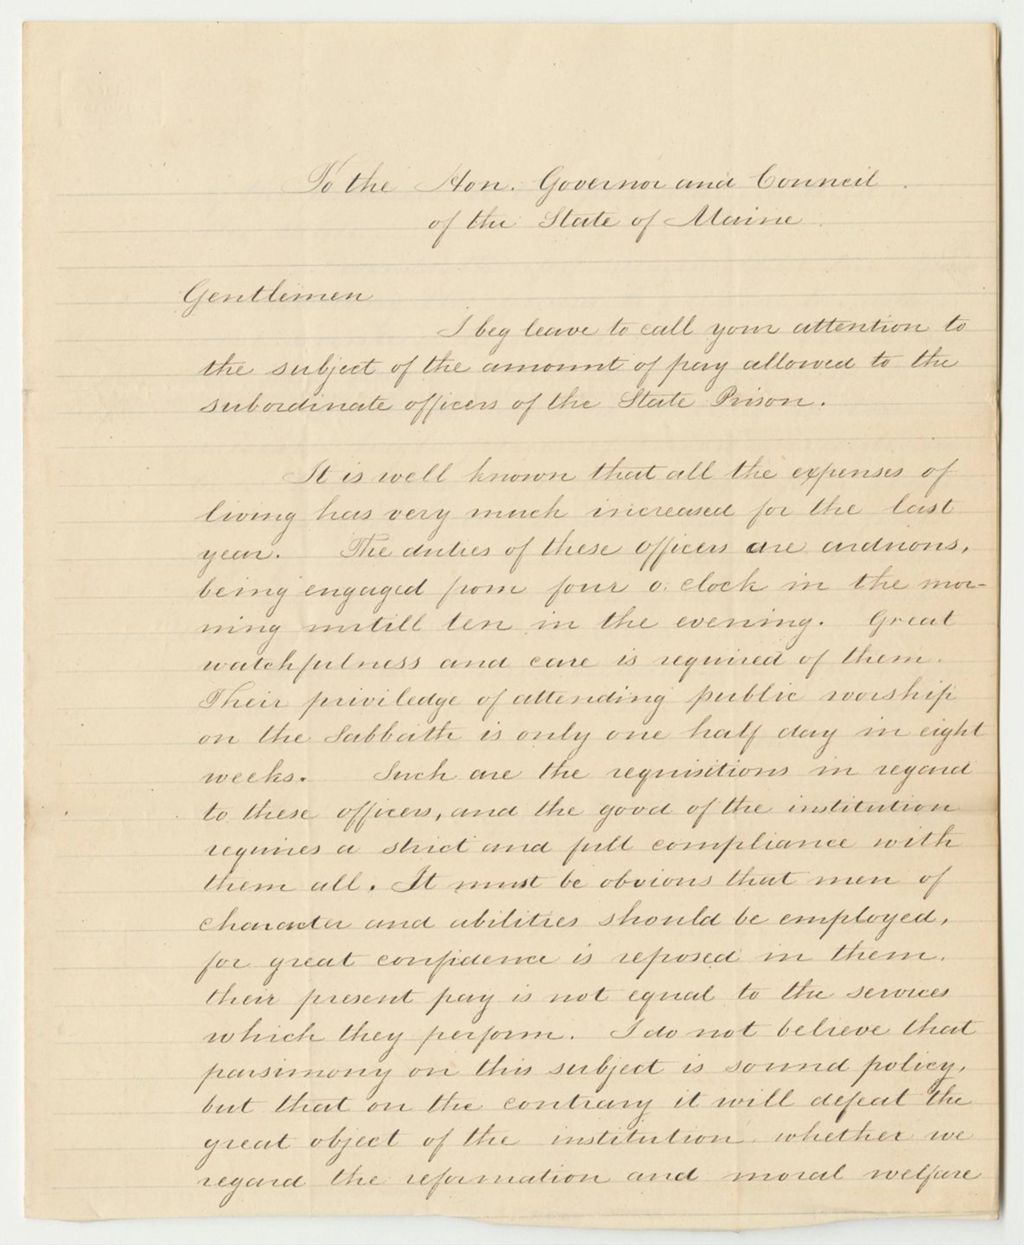 To the Hon. Governor and Council
of the State of Maine
Gentlemen
I beg leave to call your attention to
the subject of the amount of pay allowed to the
subordinate officers of the State Prison.
It is well known that all the expenses of
living has very much increased for the last
year. The duties of these officers are arduous,
being engaged from four o. clock in the mor-
ning untill ten in the evening. Great
watchfulness and care is required of them.
Their priviledge of attending public worship
on the Sabbath is only one half day in eight
weeks. Such are the requisitions in regard
to these officers, and the good of the institution
requires a strict and full compliance with
them all. It must be obvious that men of
character and abilities should be employed,
for great confidence is reposed in them.
their present pay is not equal to the services
which they perform. I do not believe that
parsimony on this subject is sound policy,
but that on the contrary it will defeat the
great object of the institution whether we
regard the reformation and moral welfare